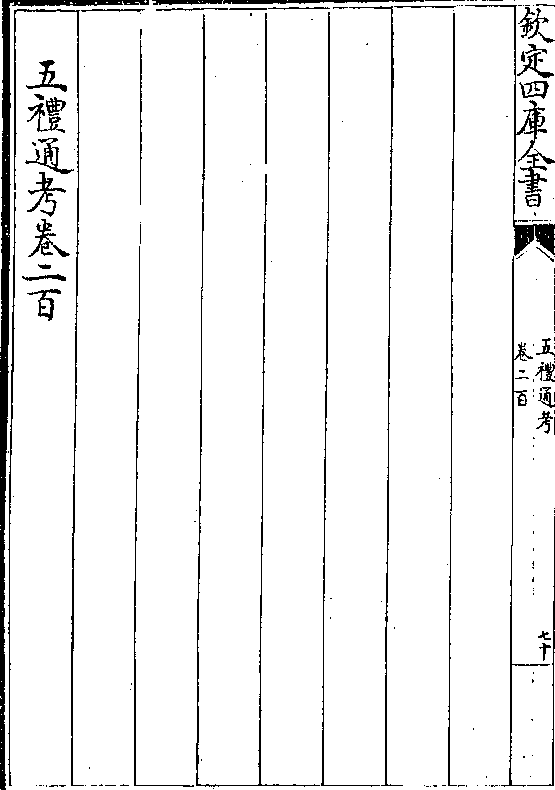 欽定四庫全書
五禮通考
卷二百
七十
五禮通考卷二百